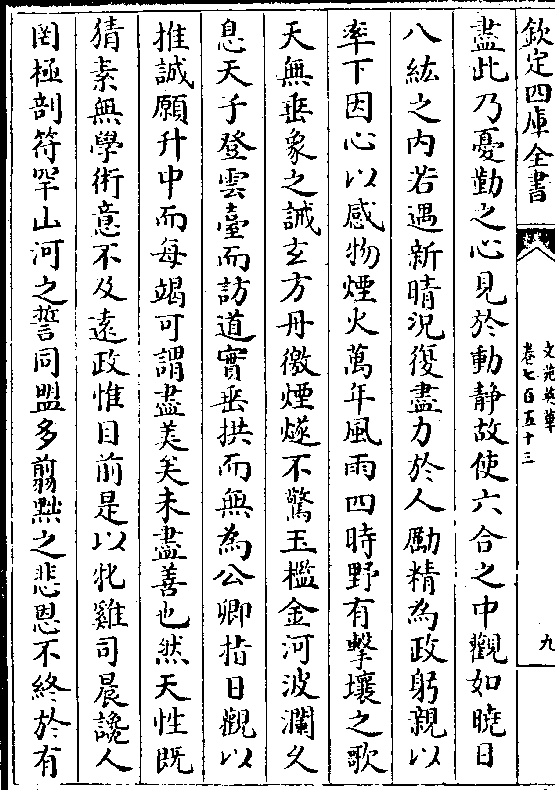 欽定四庫全書
文苑英華
卷七百五十三
九
盡此乃憂勤之心見於動静故使六合之中觀如曉日
八紘之内若遇新晴況復盡力於人勵精為政躬親以
率下因心以感物煙火萬年風雨四時野有擊壤之歌
天無垂象之誡玄方丹徼煙燧不驚玉檻金河波瀾久
息天子登雲臺而訪道實垂拱而無為公卿指日觀以
推誠願升中而每竭可謂盡美矣未盡善也然天性既
猜素無學術意不及遠政惟目前是以牝雞司晨讒人
罔極剖符罕山河之誓同盟多翦黜之悲恩不終於有